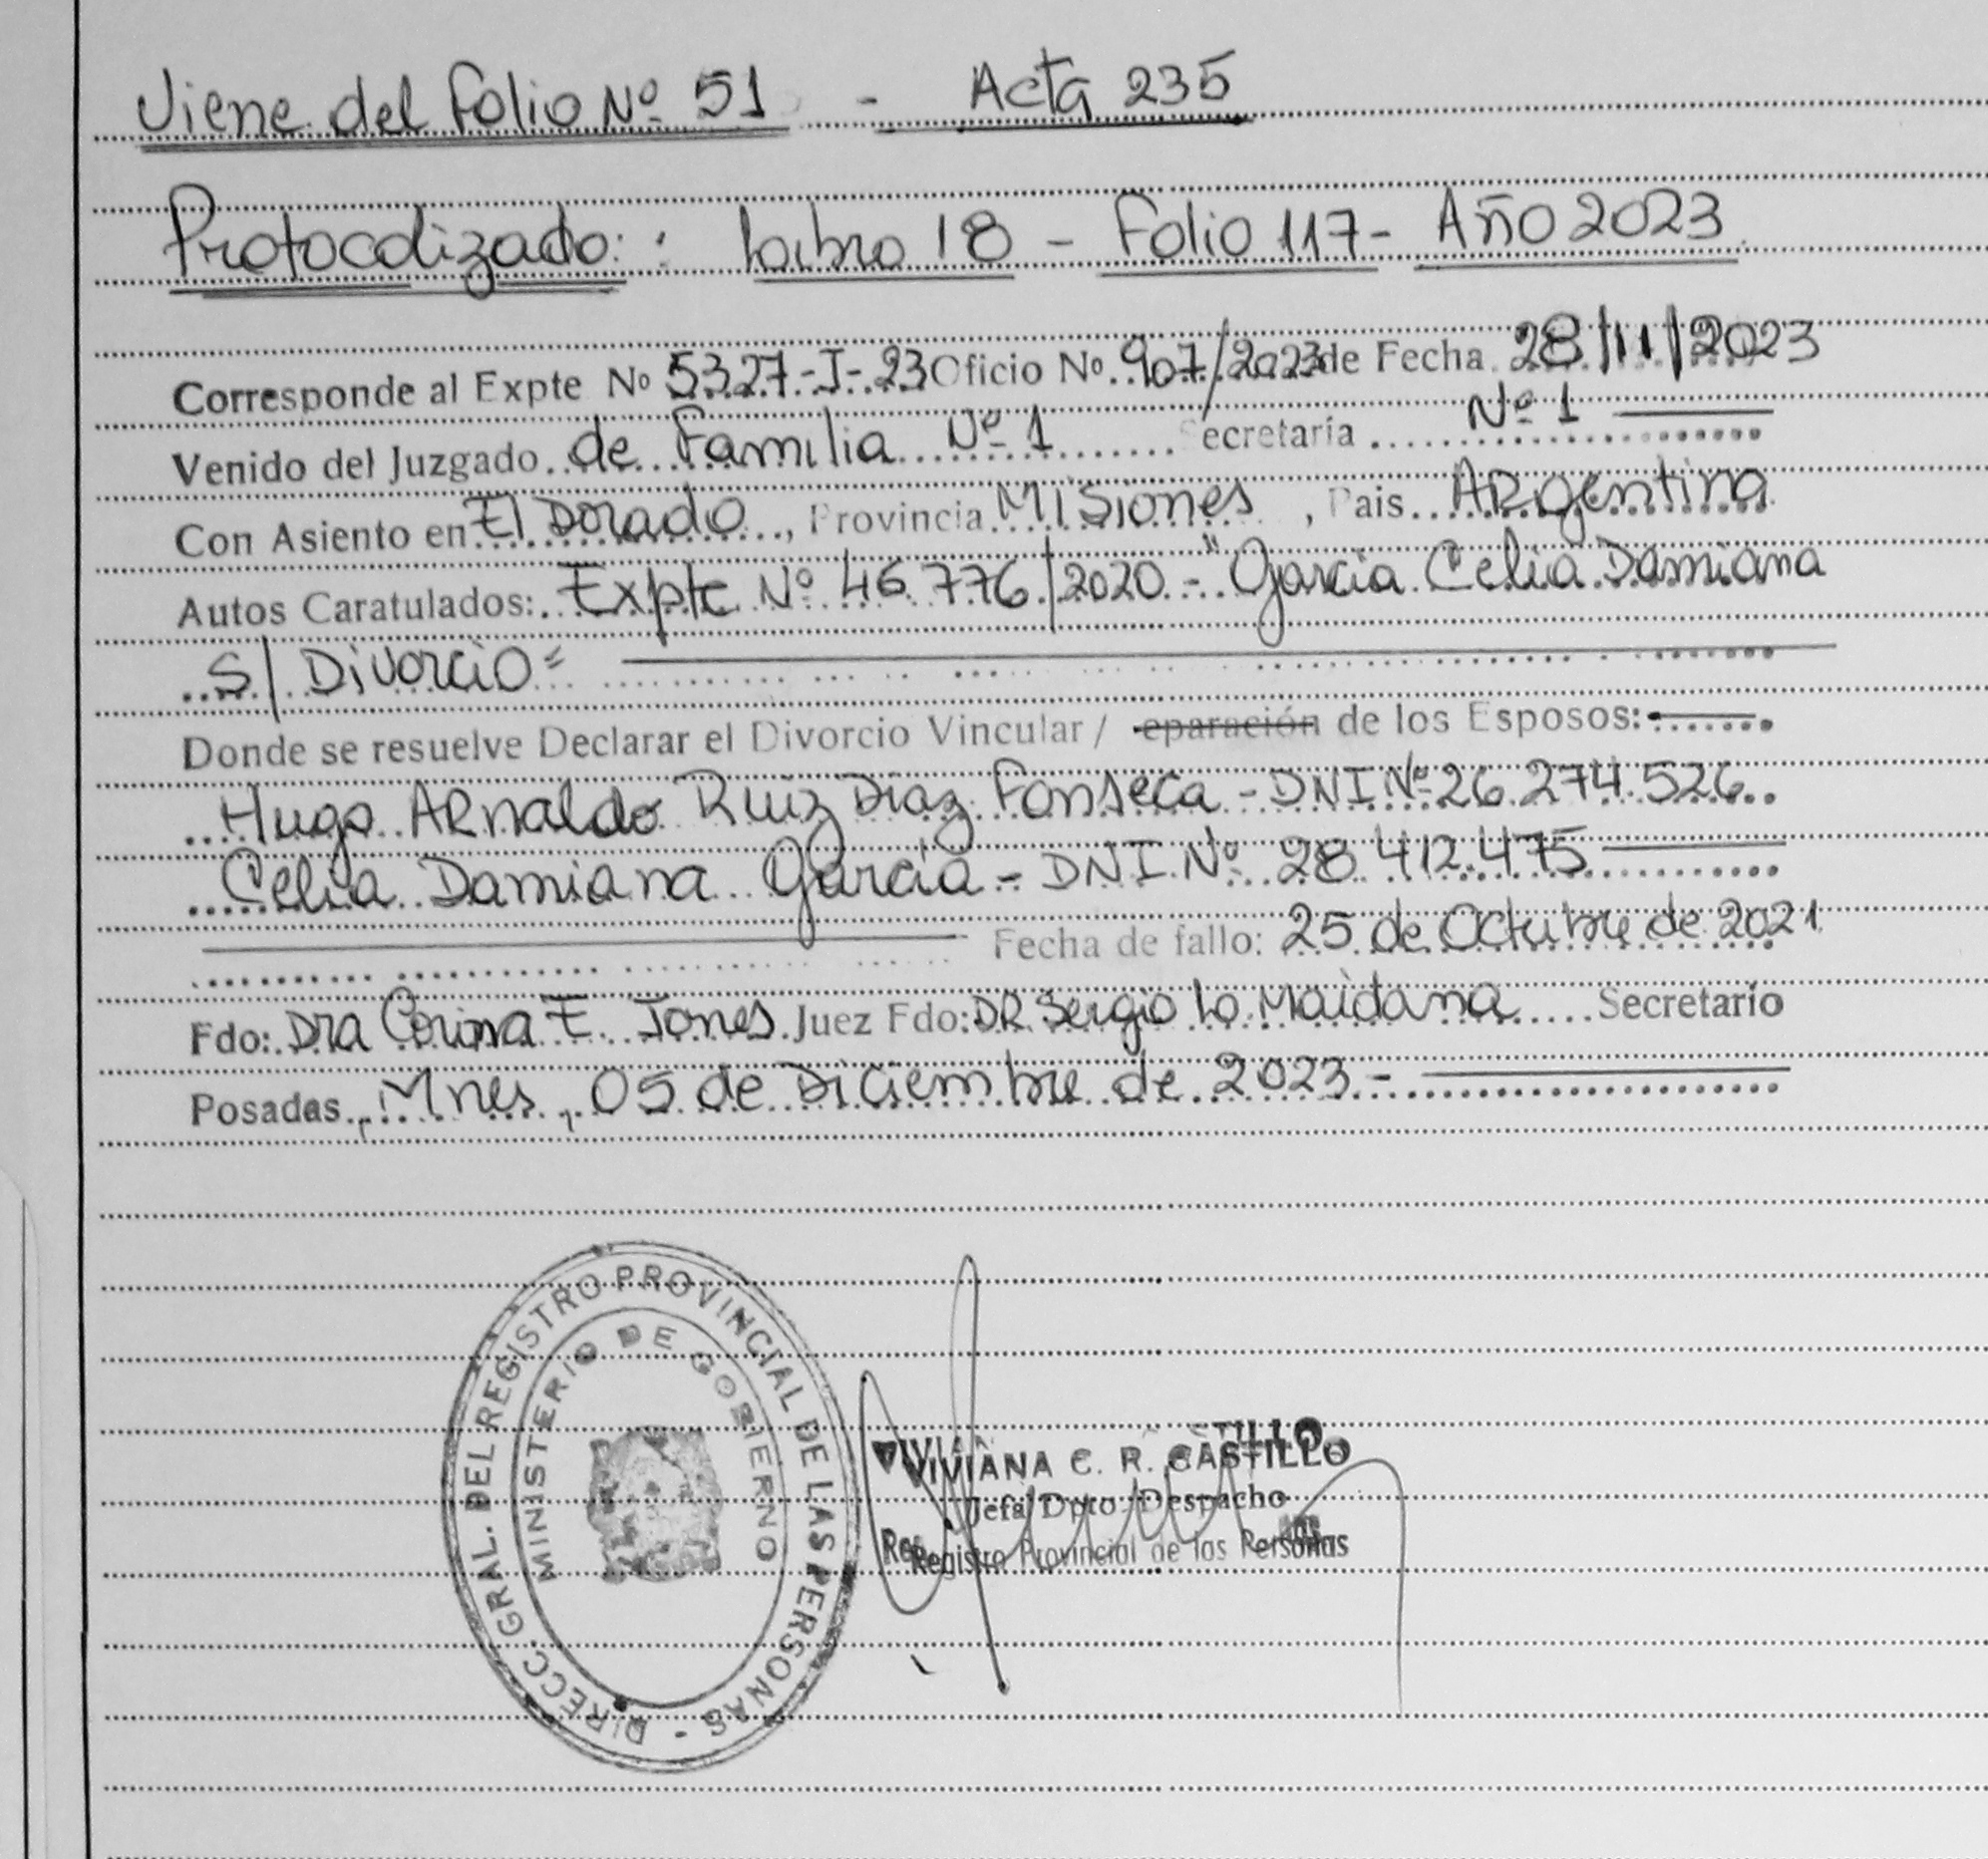 Viene del Folio Nº 51 - Acta 235
Protocolizado: : Libro 18 - Folio 117 - Año 2023
Corresponde al Expte Nº 5327-I-23 Oficio Nº 907/2023 de Fecha 28/11/2023
Venido del Juzgado de Familia Nº 1 Secretaría Nº 1
Con Asiento en El Dorado, Provincia Misiones, Pais Argentina
Autos Caratulados: Expte Nº 46.776/2020 - "Garcia Celia Damiana
S/ Divorcio"
Donde se resuelve Declarar el Divorcio Vincular / eparación de los Esposos:
Hugo Arnaldo Ruiz Diaz Fonseca - DNI Nº 26.274.526
Celia Damiana Garcia - DNI Nº 28.412.475
Fecha de fallo: 25 de Octubre de 2021
Fdo: Dra Corina E. Jones Juez Fdo: DR Sergio Lo Maidana Secretario
Posadas, Mnes, 05 de Diciembre de 2023.-
DIRECC. GRAL. DEL REGISTRO PROVINCIAL DE LAS PERSONAS -
MINISTERIO DE GOBIERNO
VIVIANA C. R. CASTILLO
Jefa Dpto. Despacho
Registro Provincial de las Personas